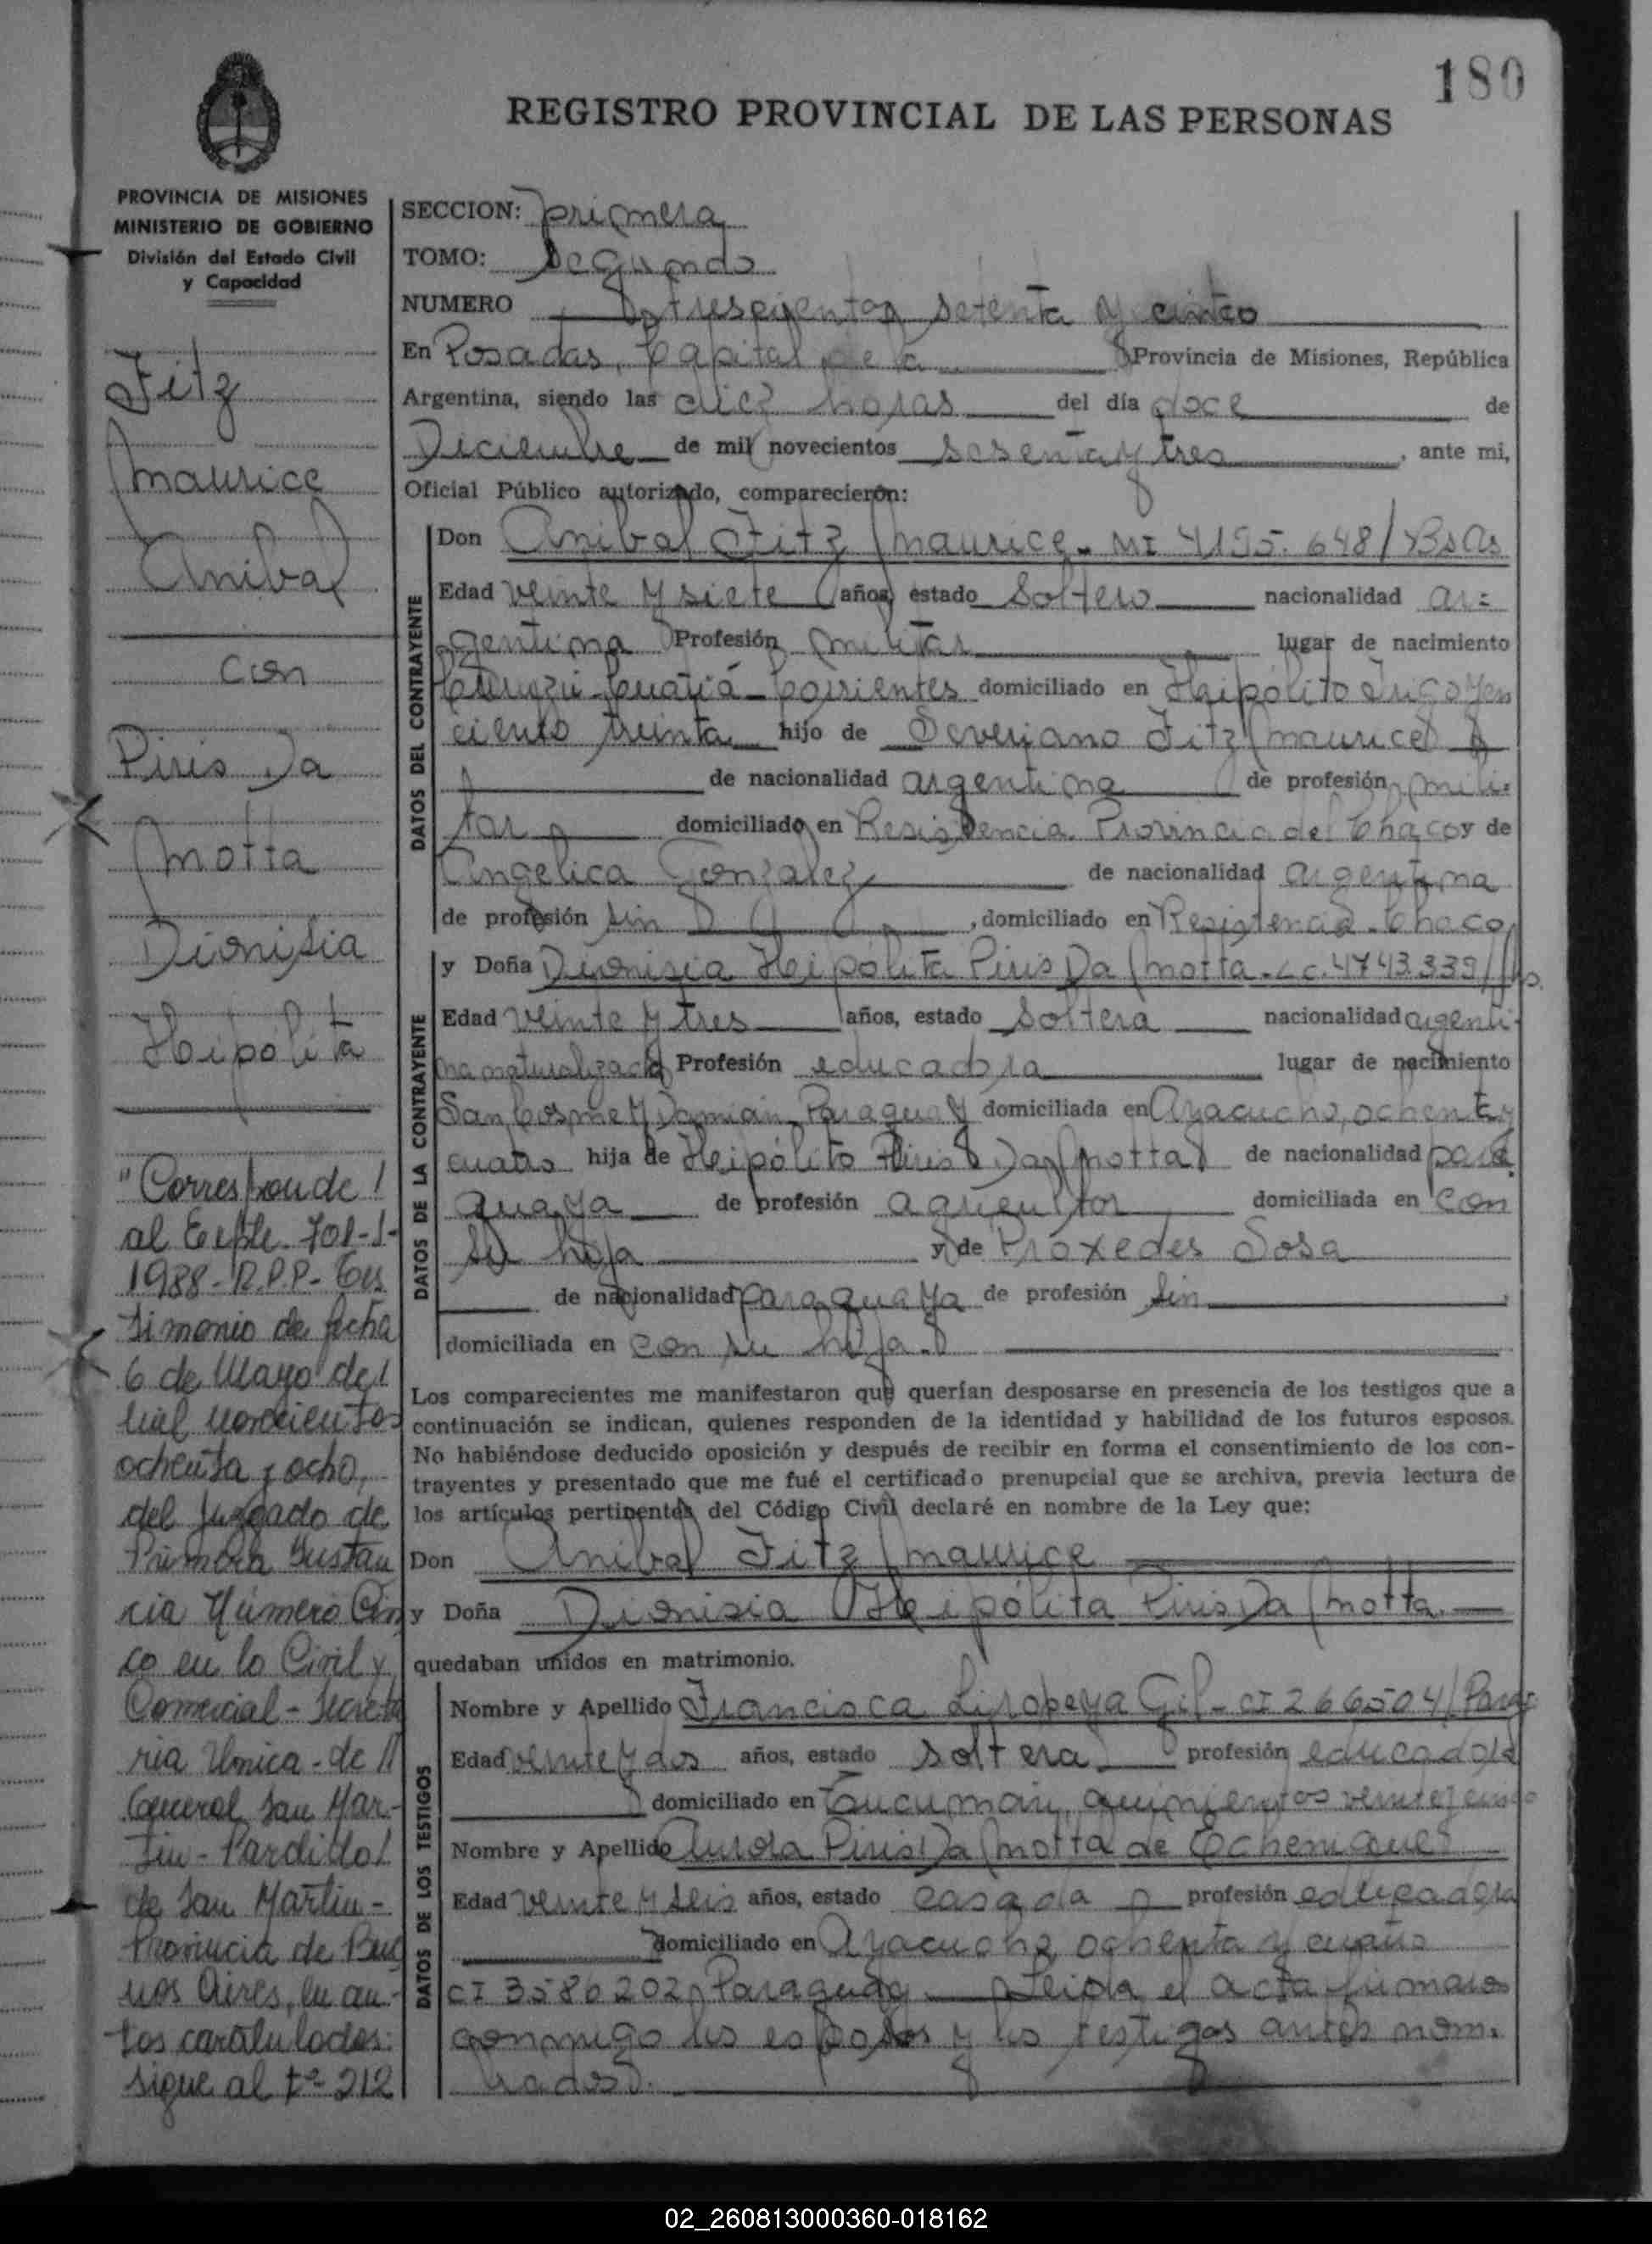 180
REGISTRO PROVINCIAL DE LAS PERSONAS
PROVINCIA DE MISIONES
MINISTERIO DE GOBIERNO
División del Estado Civil
y Capacidad
Fitz
Maurice
Anibal
con
Piris Da
Motta
Dionisia
Heipólita
"Corresponde
al Expte. 701-J-
1988-R.P.P- Tes
timonio de fecha
6 de Mayo de
mil novecientos
ochenta y ocho,
del Juzgado de
Primera Instan
cia Número Cin
co en lo Civil y
Comercial - Secreta
ria Unica - de
General San Mar-
tin - Partido
de San Martin -
Provincia de Bue
nos Aires, en au-
tos caratulados:
sigue al fº 212
SECCION: primera
TOMO: Segundo
NUMERO trescientos setenta y cinco
En Posadas, Capital de la Provincia de Misiones, República
Argentina, siendo las diez horas del día doce de
Diciembre de mil novecientos sesenta y tres, ante mi,
Oficial Público autorizado, comparecieron:
DATOS DEL CONTRAYENTE
Don Anibal Fitz Maurice. MI 4195.648/BsAs
Edad veinte y siete años, estado soltero nacionalidad ar=
gentina Profesión militar lugar de nacimiento
Curuzú-Cuatiá-Corrientes domiciliado en Heipólito Irigoyen
ciento treinta hijo de Severiano Fitz Maurice
de nacionalidad argentina de profesión mili-
tar domiciliado en Resistencia Provincia del Chaco y de
Angelica Gonzalez de nacionalidad argentina
de profesión sin, domiciliado en Resistencia-Chaco
DATOS DE LA CONTRAYENTE
y Doña Dionisia Heipólita Piris Da Motta-LC.4743339/
Edad veinte y tres años, estado soltera nacionalidad argenti-
na naturalizada Profesión educadora lugar de nacimiento
San Cosme y Damián Paraguay domiciliada en Ayacucho, ochenta y
cuatro hija de Heipólito Piris Da Motta de nacionalidad para
guaya de profesión agricultor domiciliada en con
su hija y de Próxedes Sosa
de nacionalidad paraguaya de profesión sin,
domiciliada en con su hija.
Los comparecientes me manifestaron que querían desposarse en presencia de los testigos que a
continuación se indican, quienes responden de la identidad y habilidad de los futuros esposos.
No habiéndose deducido oposición y después de recibir en forma el consentimiento de los con-
trayentes y presentado que me fué el certificado prenupcial que se archiva, previa lectura de
los artículos pertinentes del Código Civil declaré en nombre de la Ley que:
Don Anibal Fitz Maurice
y Doña Dionisia Heipólita Piris Da Motta.
quedaban unidos en matrimonio.
DATOS DE LOS TESTIGOS
Nombre y Apellido Francisca Liropeya Gil-CI 266504/Parag
Edad veinte y dos años, estado soltera profesión educadora
domiciliado en Tucumán, quinientos veinte y cinco
Nombre y Apellido Aurora Piris Da Motta de Echenique
Edad veinte y seis años, estado casada profesión educadora
domiciliado en Ayacucho ochenta y cuatro
CI 3586202 Paraguay Leida el acta firmaron
conmigo los esposos y los testigos antes nom-
brados.
02_260813000360-018162